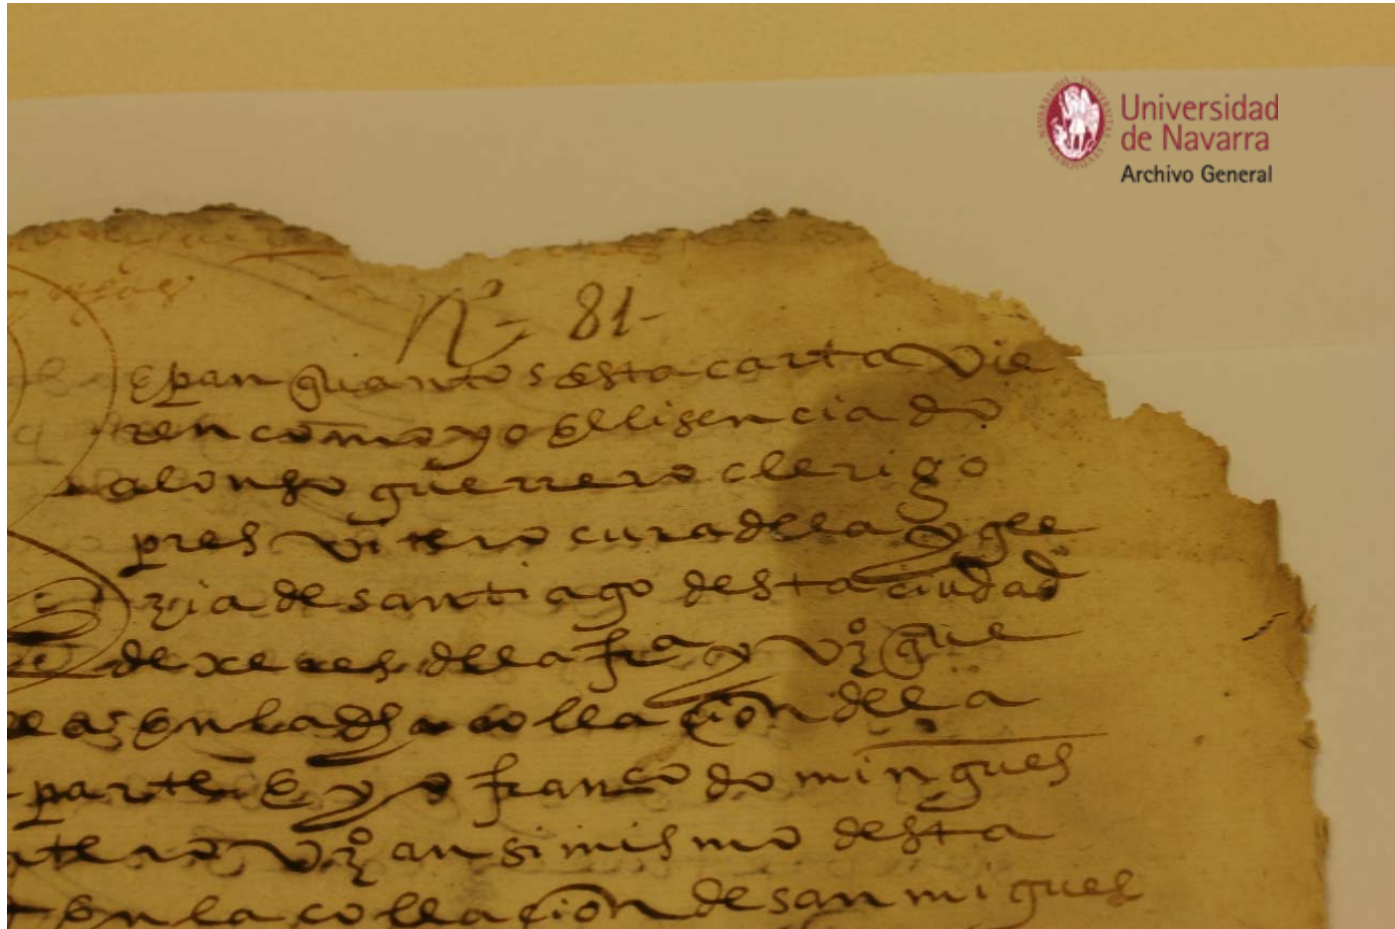 Universidad
de Navarra
Archivo General
Nº = 81-
epan quantos esta carta vie
ren como yo el lisenciado
alonso guerrero clerigo
presvitero cura de la ygle
zia de santiago desta ciudad
de xeres de la fra y vzº que
en la dha collacion de la
parte E yo franco domingues
vzº ansimismo desta
en la collacion de san miguel